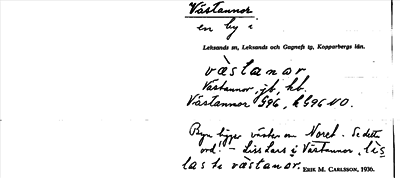 Västannor
en by i
Leksands sn, Leksands och Gagnefs tg, Kopparbergs län.
västanor
Västannor, jb, hb.
Västannor G96, kG96 NO.
Byn ligger väster om Noret. Se detta
ord! – Liss Lars i Västannor, lis
las te västanor. ERIK M. CARLSSON, 1936.